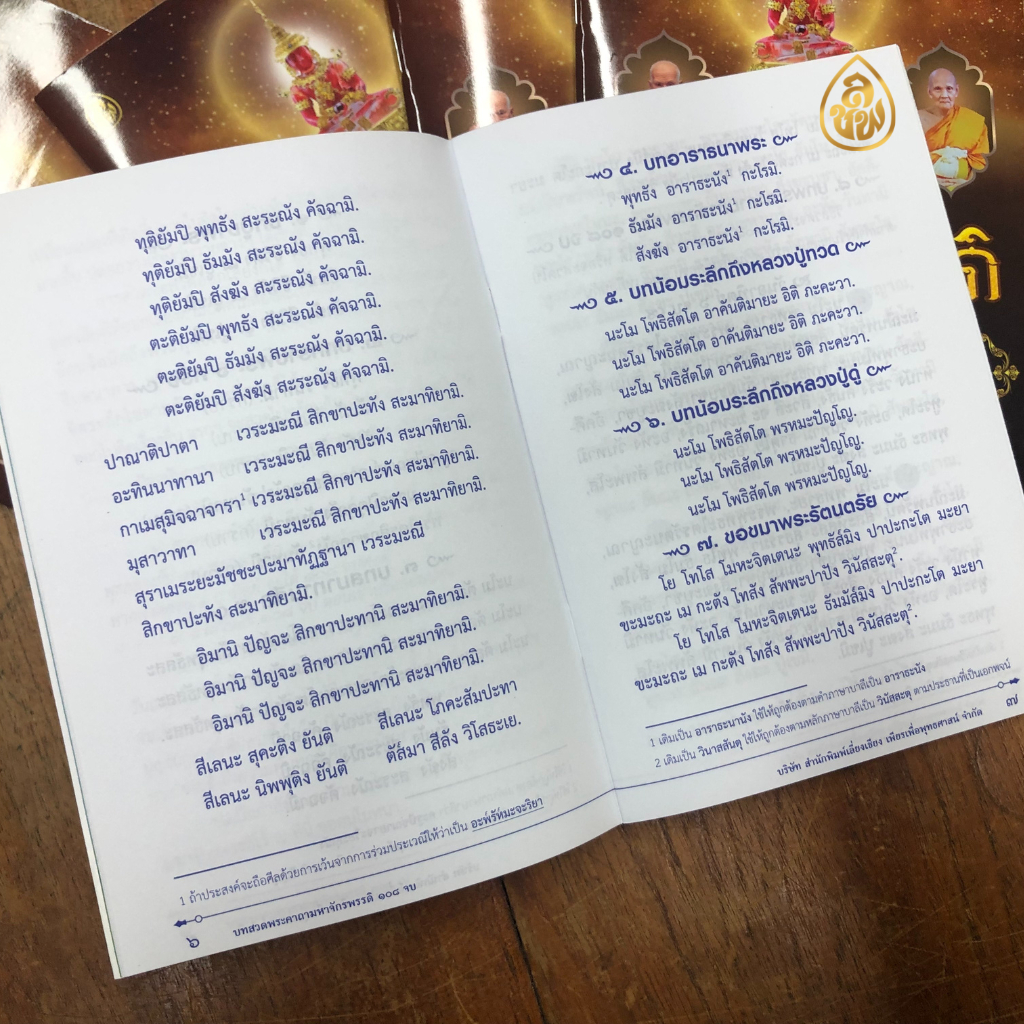 ทุติยัมปิ พุทธัง สะระณัง คัจฉามิ.
ทุติยัมปิ ธัมมัง สะระณัง คัจฉามิ.
ทุติยัมปิ สังฆัง สะระณัง คัจฉามิ.
ตะติยัมปิ พุทธัง สะระณัง คัจฉามิ.
ตะติยัมปิ ธัมมัง สะระณัง คัจฉามิ.
ตะติยัมปิ สังฆัง สะระณัง คัจฉามิ.
ปาณาติปาตา เวระมะณี สิกขาปะทัง สะมาทิยามิ.
อะทินนาทานา เวระมะณี สิกขาปะทัง สะมาทิยามิ.
กาเมสุมิจฉาจารา¹ เวระมะณี สิกขาปะทัง สะมาทิยามิ.
มุสาวาทา เวระมะณี สิกขาปะทัง สะมาทิยามิ.
สุราเมระยะมัชชะปะมาทัฏฐานา เวระมะณี
สิกขาปะทัง สะมาทิยามิ.
อิมานิ ปัญจะ สิกขาปะทานิ สะมาทิยามิ.
อิมานิ ปัญจะ สิกขาปะทานิ สะมาทิยามิ.
อิมานิ ปัญจะ สิกขาปะทานิ สะมาทิยามิ.
สีเลนะ สุคะติง ยันติ สีเลนะ โภคะสัมปะทา
สีเลนะ นิพพุติง ยันติ ตัส๎มา สีลัง วิโสธะเย.
1 ถ้าประสงค์จะถือศีลด้วยการเว้นจากการร่วมประเวณีให้ว่าเป็น อะพ๎รัห๎มะจะริยา
๖ บทสวดพระคาถามหาจักรพรรดิ ๑๐๘ จบ
๔. บทอาราธนาพระ
พุทธัง อาราธะนัง¹ กะโรมิ.
ธัมมัง อาราธะนัง¹ กะโรมิ.
สังฆัง อาราธะนัง¹ กะโรมิ.
๕. บทน้อมระลึกถึงหลวงปู่ทวด
นะโม โพธิสัตโต อาคันติมายะ อิติ ภะคะวา.
นะโม โพธิสัตโต อาคันติมายะ อิติ ภะคะวา.
นะโม โพธิสัตโต อาคันติมายะ อิติ ภะคะวา.
๖. บทน้อมระลึกถึงหลวงปู่ดู่
นะโม โพธิสัตโต พรหมะปัญโญ.
นะโม โพธิสัตโต พรหมะปัญโญ.
นะโม โพธิสัตโต พรหมะปัญโญ.
๗. ขอขมาพระรัตนตรัย
โย โทโส โมหะจิตเตนะ พุทธัส๎มิง ปาปะกะโต มะยา
ขะมะถะ เม กะตัง โทสัง สัพพะปาปัง วินัสสะตุ².
โย โทโส โมหะจิตเตนะ ธัมมัส๎มิง ปาปะกะโต มะยา
ขะมะถะ เม กะตัง โทสัง สัพพะปาปัง วินัสสะตุ².
1 เดิมเป็น อาราธะนานัง ใช้ให้ถูกต้องตามคำภาษาบาลีเป็น อาราธะนัง
2 เดิมเป็น วินาสสันตุ ใช้ให้ถูกต้องตามหลักภาษาบาลีเป็น วินัสสะตุ ตามประธานที่เป็นเอกพจน์
บริษัท สำนักพิมพ์เลี่ยงเชียง เพียรเพื่อพุทธศาสน์ จำกัด ๗